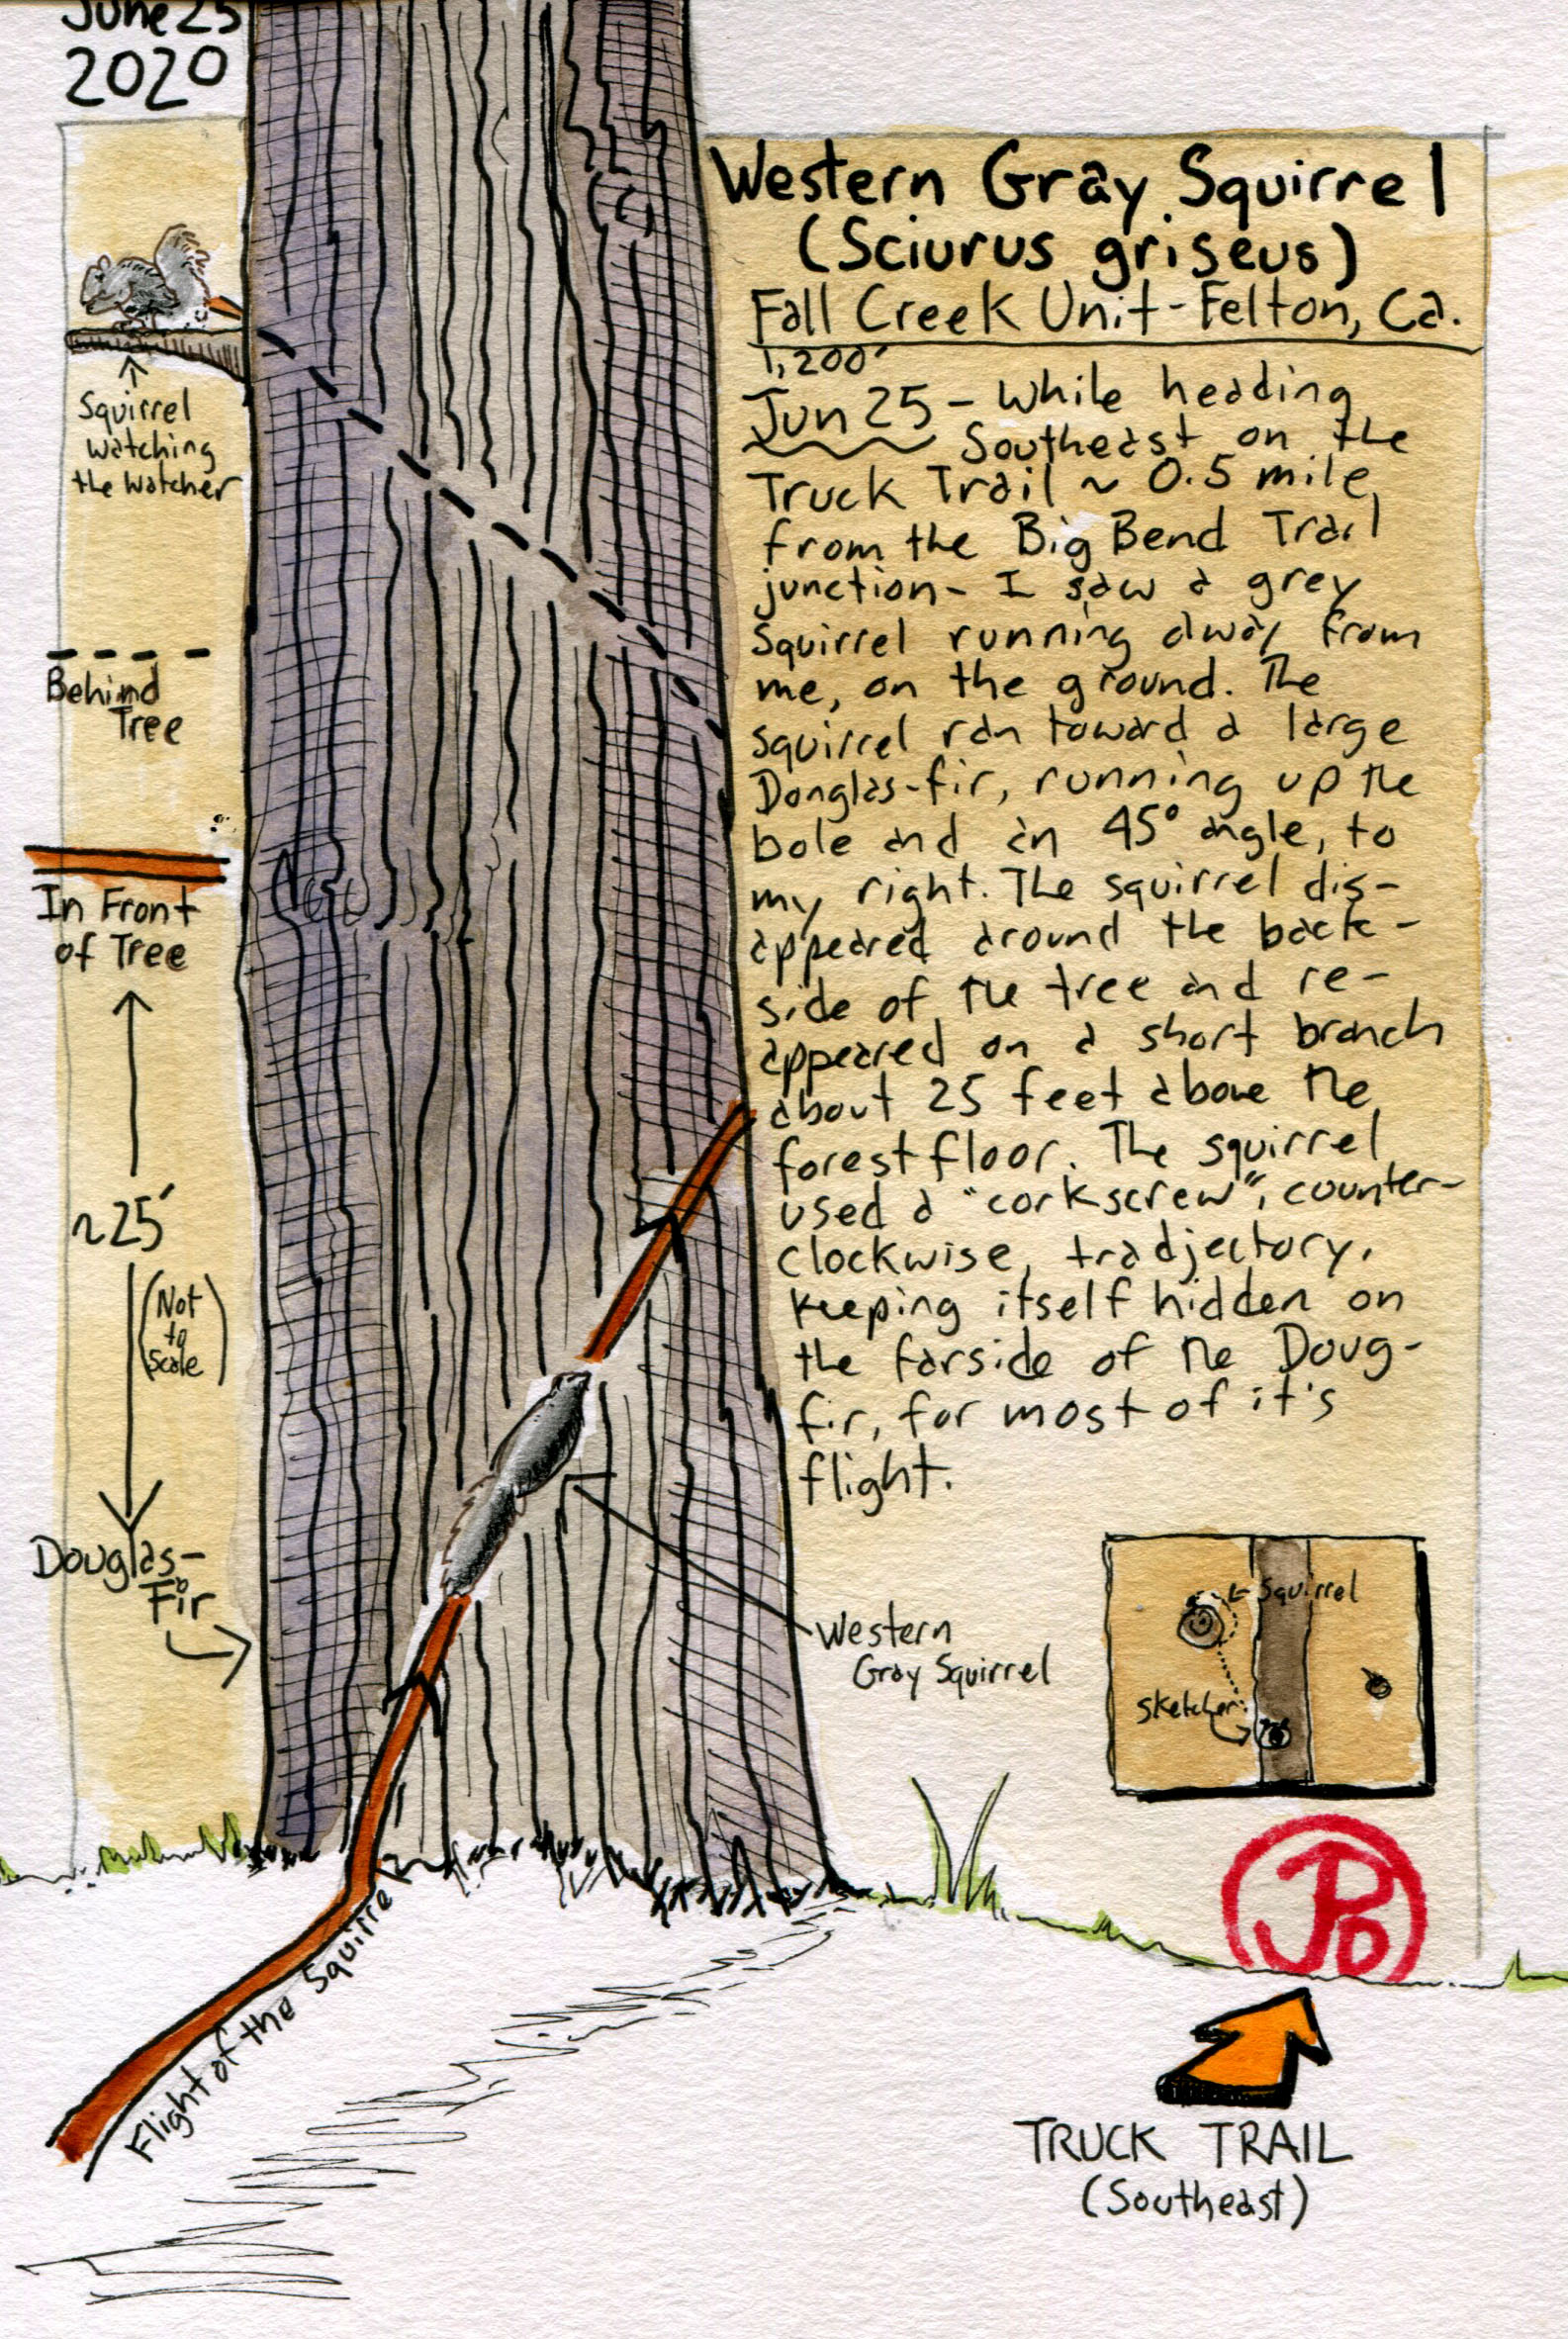 June 25
2020
Western Gray Squirrel
(Sciurus griseus)
Fall Creek Unit-Felton, Ca.
1,200'
Jun 25 - While heading
Southeast on the
Truck Trail ~ 0.5 mile
from the Big Bend Trail
junction- I saw a grey
squirrel running away from
me, on the ground. The
squirrel ran toward a large
Douglas-fir, running up the
bole and an 45° angle, to
my right. The squirrel dis-
appeared around the back-
side of the tree and re-
appeared on a short branch
about 25 feet above the
forest floor. The squirrel
used a "corkscrew", counter-
clockwise, tradjectory,
keeping itself hidden on
the farside of the Doug-
fir, for most of it's
flight.
Squirrel
Watching
the Watcher
Behind
Tree
In Front
of Tree
~25'
(Not
to
Scale)
Douglas-
Fir
Western
Gray Squirrel
Squirrel
Sketcher
Flight of the Squirrel
JPo
TRUCK TRAIL
(Southeast)